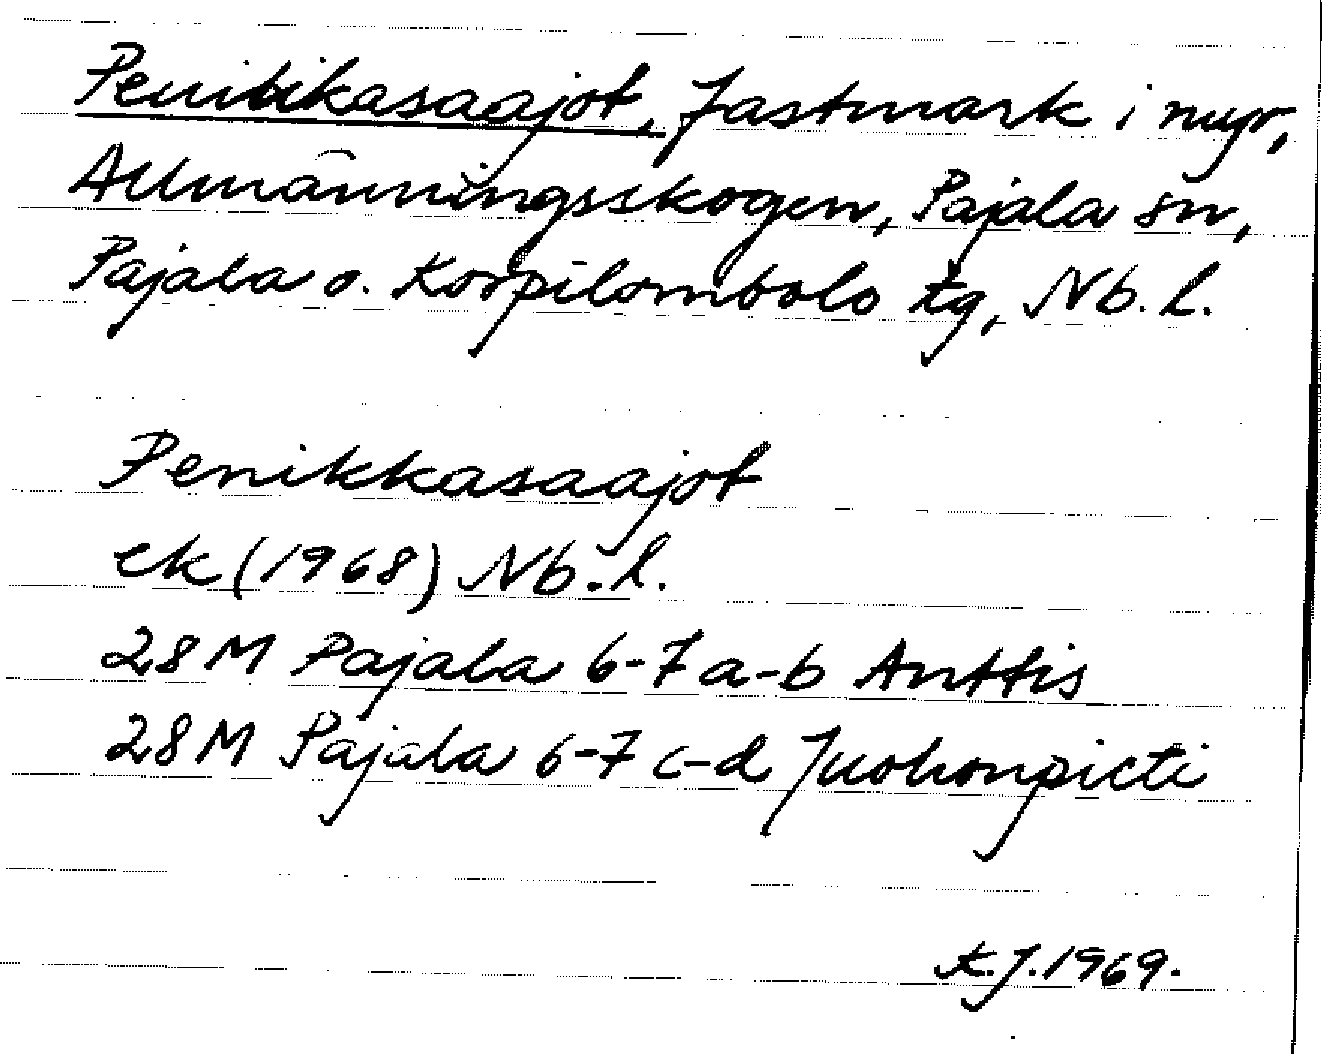 Penikkasaajot, Fastmark i myr,
Allmänningsskogen, Pajala sn,
Pajala o. Korpilombolo tg, Nb. l.
Penikkasaajot
ek (1968) Nb. l.
28M Pajala 6-7 a-b Anttis
28M Pajala 6-7 c-d Juohonpieti
K.J. 1969.